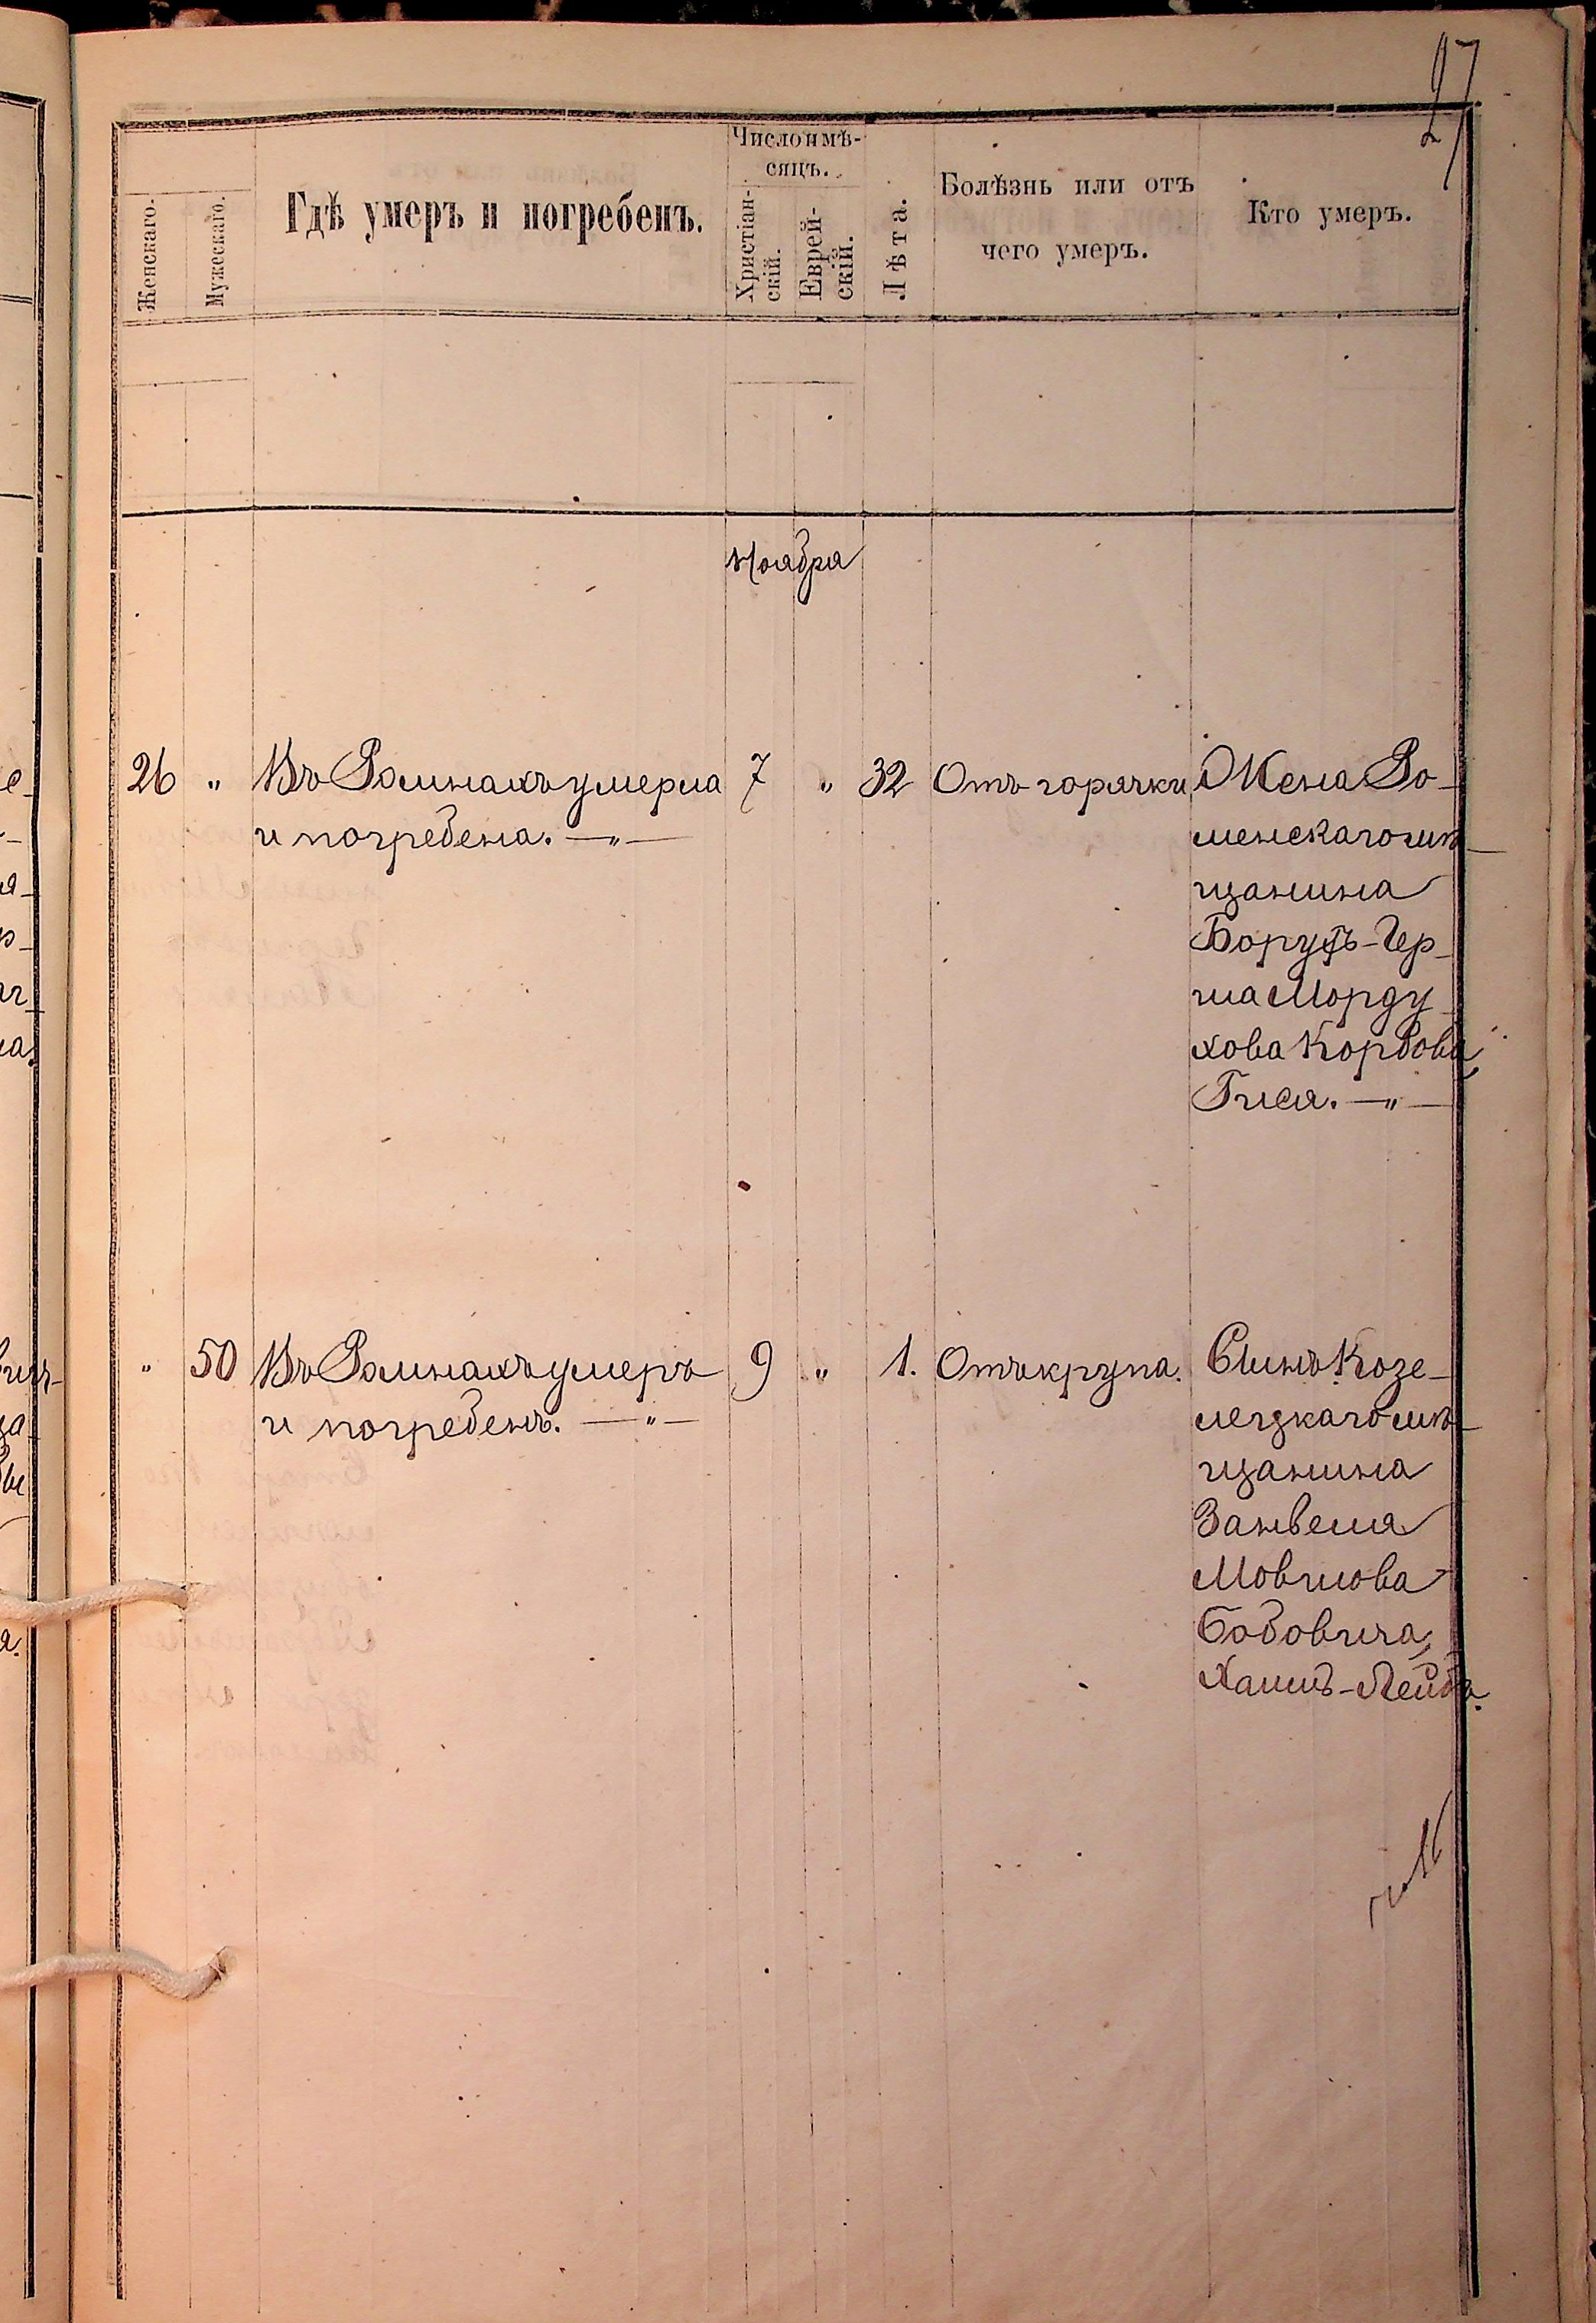 27
Женскаго.
Мужескаго.
Гдѣ умеръ и погребенъ.
Число и мѣ-
сяцъ.
Христіан-
скій.
Еврей-
скій.
Лѣта.
Болѣзнь или отъ
чего умеръ.
Кто умеръ.
Ноября
26 " Въ Ромнахъ умерла 7 " 32 Отъ горячки Жена Ро-
и погребена. —"—
менскаго мѣ-
щанина
Борухъ-Гер-
ша Морду
хова Кордова,
Гися. —"—
" 50 Въ Ромнахъ умеръ 9 " 1. Отъ крупа. Сынъ Козе-
и погребенъ. —"—
лецкаго мѣ-
щанина
Занвеля
Мовшова
Бобовича,
Хаимъ-Лейба.